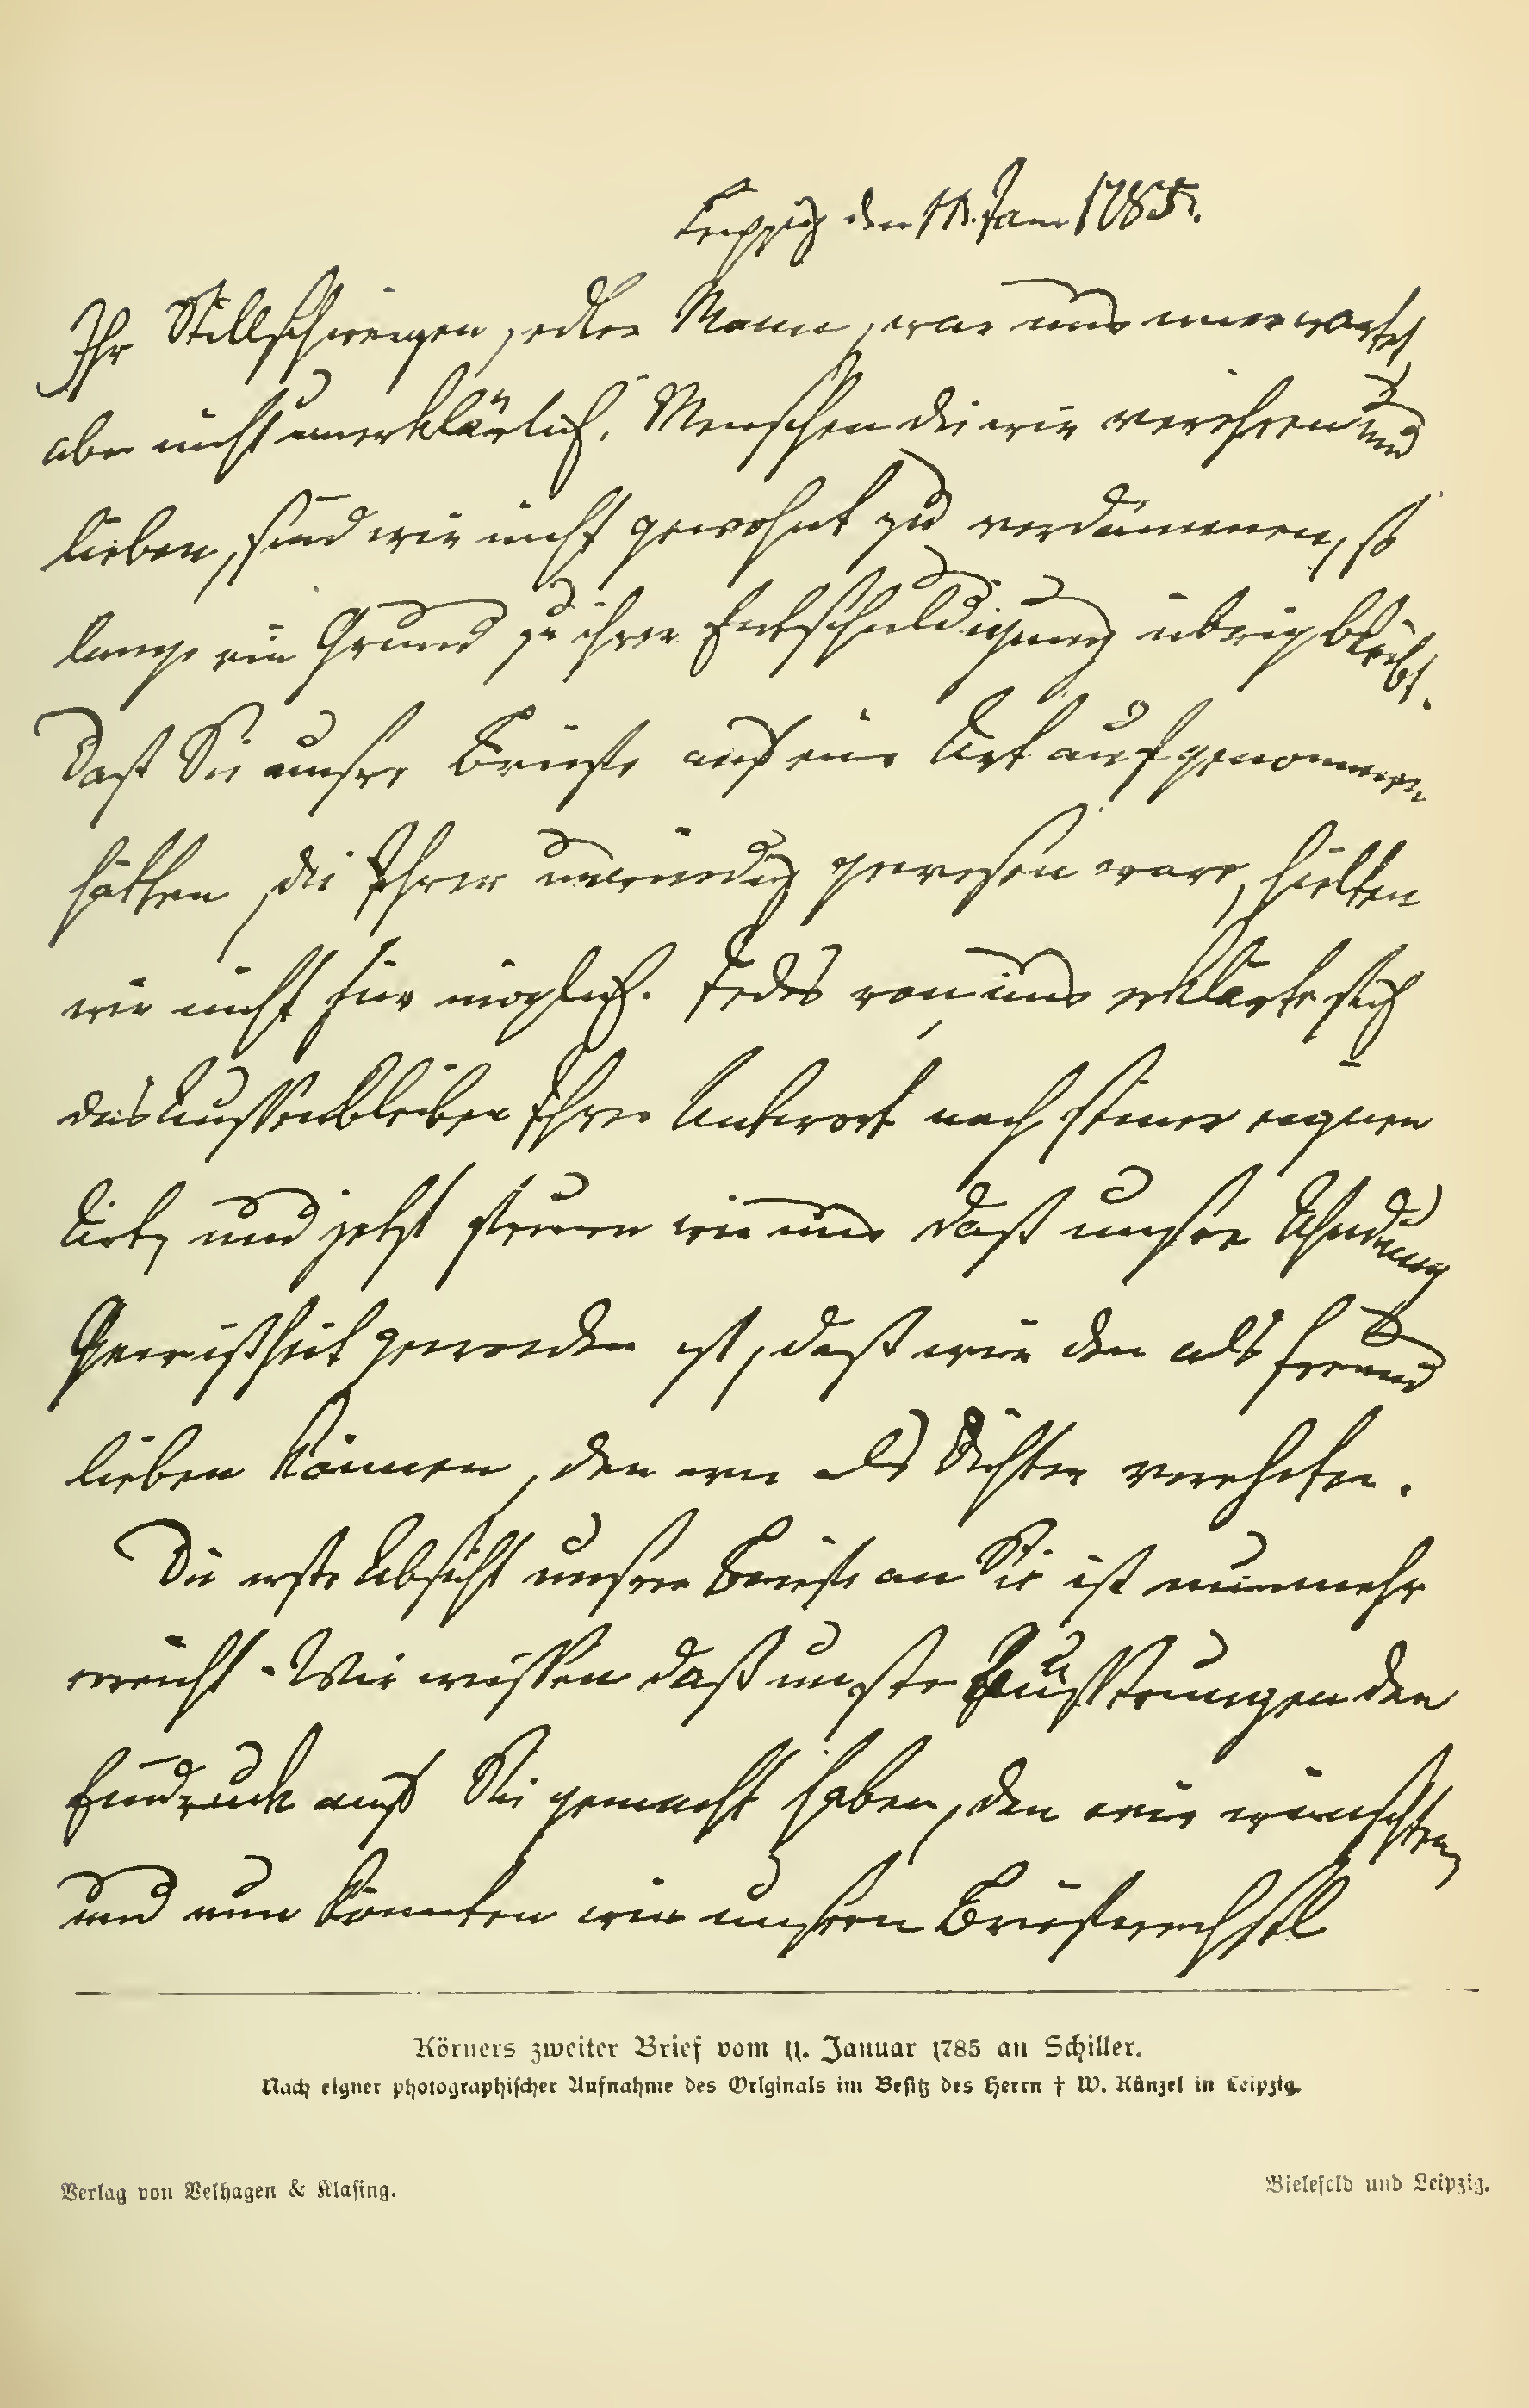 Leipzig den 11. Jan. 1785.
Ihr Stillschweigen, edler Mann, war uns unerwartet
aber nicht unerklärlich. Menschen die wir verehren und
lieben, sind wir nicht gewohnt zu verdammen, so
lange ein Grund zu ihrer Entschuldigung übrig bleibt.
Daß Sie unsre Briefe auf eine Art aufgenommen
hätten, die Ihrer unwürdig gewesen ware, hielten
wir nicht für möglich. Jedes von uns erklärte sich
das Aussenbleiben Ihrer Antwort nach seiner eignen
Art, und jetzt freuen wir uns daß unsre Ahndung
Gewißheit geworden ist, daß wir den als Freund
lieben können, den wir als Dichter verehrten.
Die erste Absicht unsrer Briefe an Sie ist nunmehr
erreicht. Wir wissen daß unsre Äusserungen den
Eindruck auf Sie gemacht haben, den wir wünschten,
und nun könnten wir unsern Briefwechsel
Körners zweiter Brief vom 11. Januar 1785 an Schiller.
Nach eigner photographischer Aufnahme des Originals im Besitz des Herrn † W. Künzel in Leipzig.
Verlag von Velhagen & Klasing. Bielefeld und Leipzig.